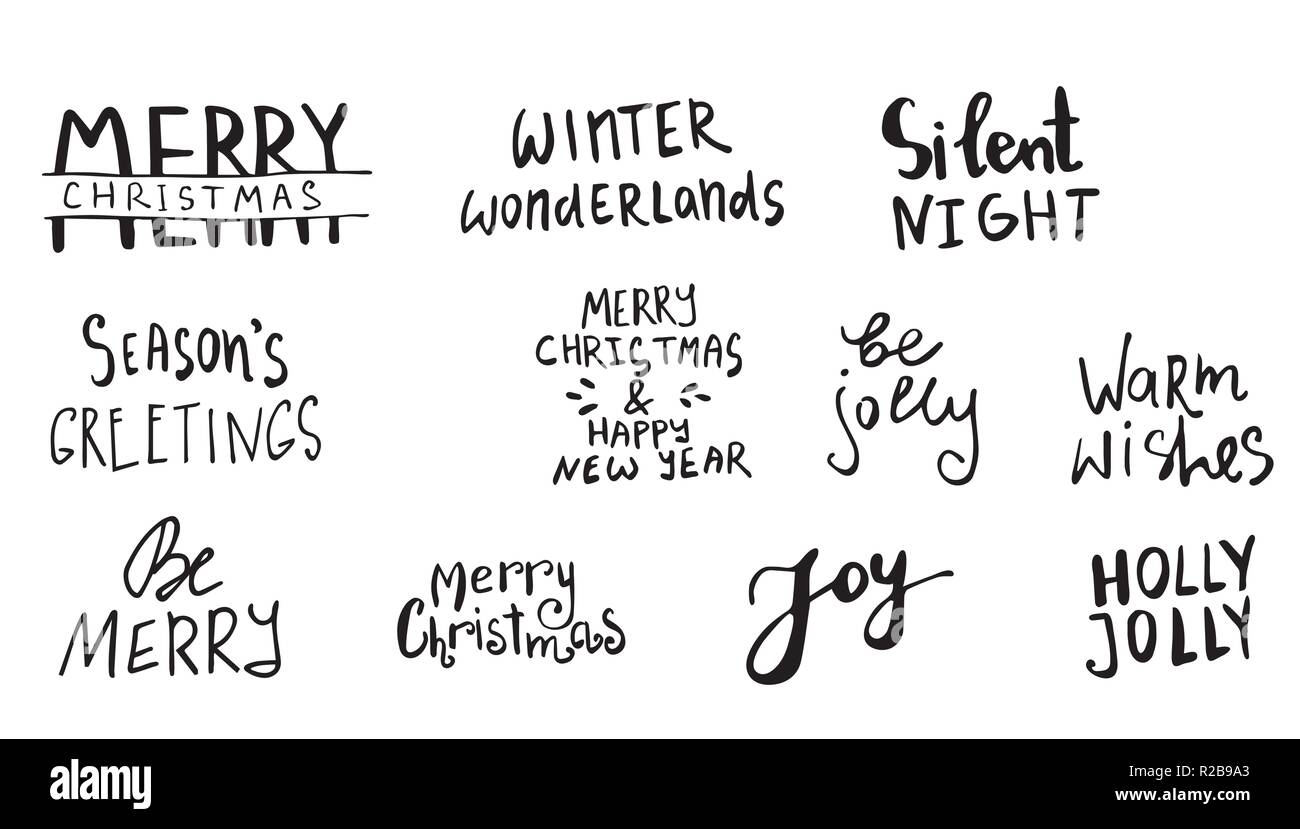 MERRY
CHRISTMAS
WINTER
WonDERLands
Silent
NIGHT
SEASON'S
GREETINGS
MERRY
CHRISTMAS
&
HAPPY
NEW YEAR
be
jolly
WaRm
Wishes
Be
MERRY
Merry
Christmas
Joy
HOLLY
JOLLY
alamy
Image ID: R2B9A3
www.alamy.com